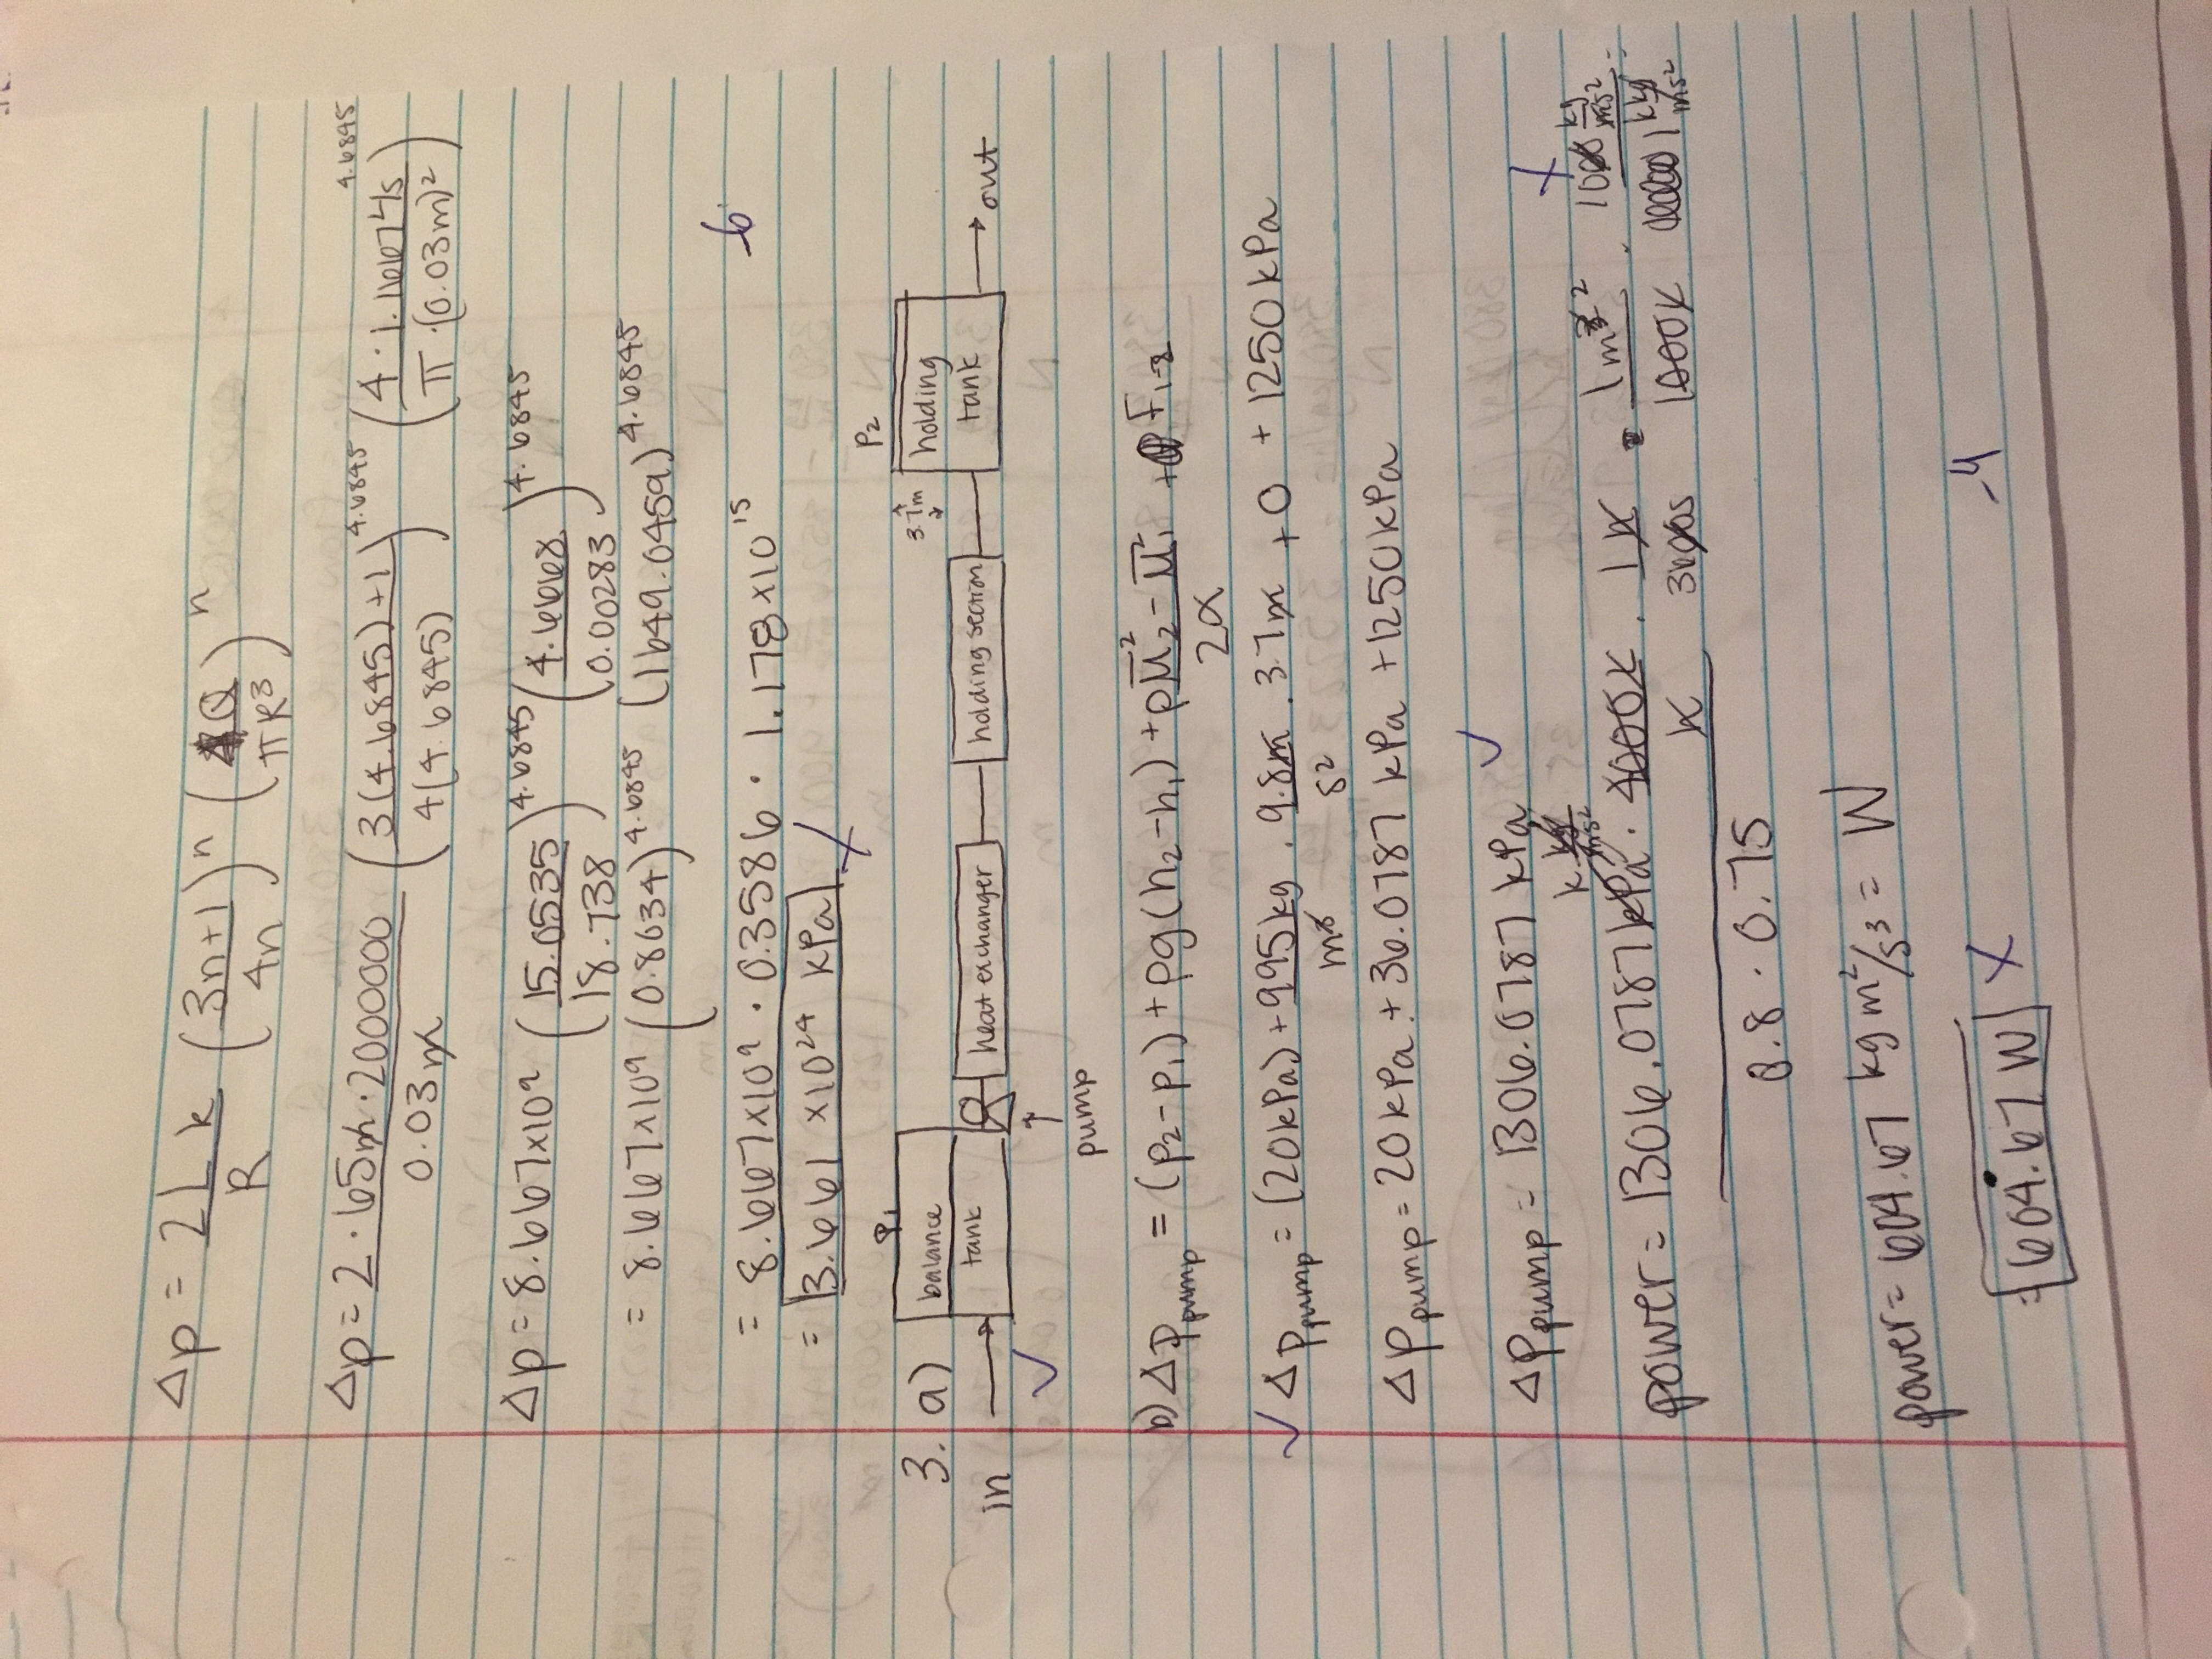 Δp = 2Lk/R (3n+1/4n)^n (4Q/πR³)^n
Δp = 2·65m·2000000/0.03m (3(4.6845)+1/4(4.6845))^4.6845 (4·1.1667 L/s/π·(0.03m)²)^4.6845
Δp = 8.667x10⁹ (15.0535/18.738)^4.6845 (4.6668/0.00283)^4.6845
= 8.667x10⁹ (0.8034)^4.6845 (1649.0459)^4.6845
-6
= 8.667x10⁹ · 0.3586 · 1.178x10¹⁵
= 3.661 x10²⁴ kPa
3. a)
P₁
P₂
balance
tank
3.7m
holding
tank
in
heat exchanger
holding section
out
pump
b) ΔPpump = (p₂-p₁) + ρg(h₂-h₁) + ρ ū₂²-ū₁²/2α + F₁₋₂
ΔPpump = (20kPa) + 995kg/m³ · 9.8m/s² · 3.7m + 0 + 1250kPa
ΔPpump = 20kPa + 36.0787 kPa + 1250kPa
ΔPpump = 1306.0787 kPa
k kg/ms²
power = 1306.0787 kPa · 1000L/h · 1h/3600s · 1m³ ²/1000L · 1000 kg/ms²/1 kkg/ms² =
0.8 · 0.75
power = 604.67 kg m²/s³ = W
-4
= 604.67 W